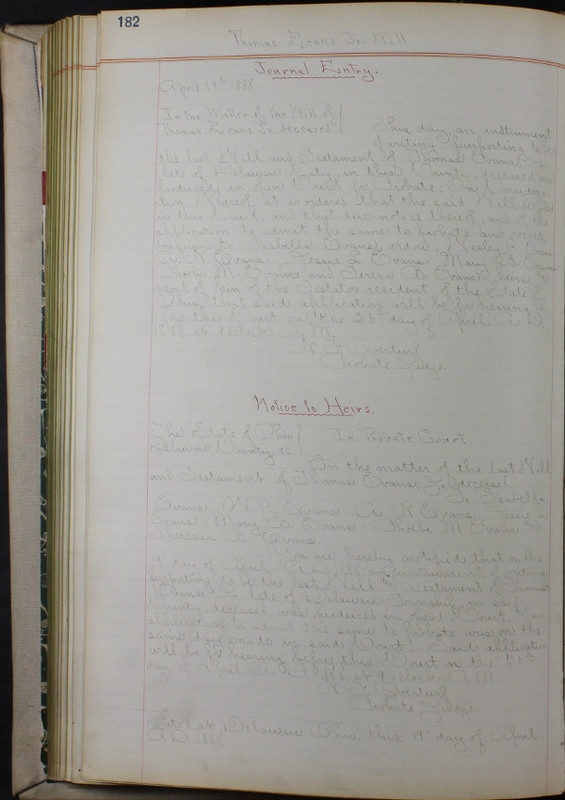 182
Thomas Evans Jr. Will
Journal Entry.
April 19th 1888
In the Matter of the Will of
Thomas Evans Jr. deceased
This day an instrument
of writing purporting to be
the last Will and Testament of Thomas Evans
late of Delaware City, in this County, deceased was
produced in open Court for Probate. On
thereof it is ordered that the said Will be filed
in this Court, and that due notice thereof, and of the
application to admit the same to probate and record
be given to Isabella Evans, Wesley
A. N. Evans. Jessie L. Evans. Mary A. Evans
Phoebe M. Evans and Teresa D. Evans, heirs
next of kin of the Testator resident of the State of
Ohio, that said application will be for hearing
this Court on the day of April A.D.
1888 at 9 o'clock A.M.
N. F. Overturf
Probate Judge.
Notice to Heirs.
The State of Ohio
Delaware County ss.
In Probate Court
In the matter of the last Will
and Testament of Thomas Evans Jr. deceased
To Isabella
Evans. Evans. A. N. Evans. Jessie L.
Evans. Mary A. Evans. Phoebe M Evans
Theressa D. Evans.
You are hereby notified that on the
day of April A.D. 1888 an instrument of writing
purporting to be the last Will and Testament of Thomas
Evans late of Delaware Township in said
County, deceased, was produced in open Court, an
application to admit the same to probate was on the
same day made in said Court. Said application
will be for hearing before this Court on the
day of April A.D. 1888 at 9 o'clock A.M
N. F. Overturf
Probate Judge
Dated at Delaware Ohio, this 19th day of April
A.D. 1888